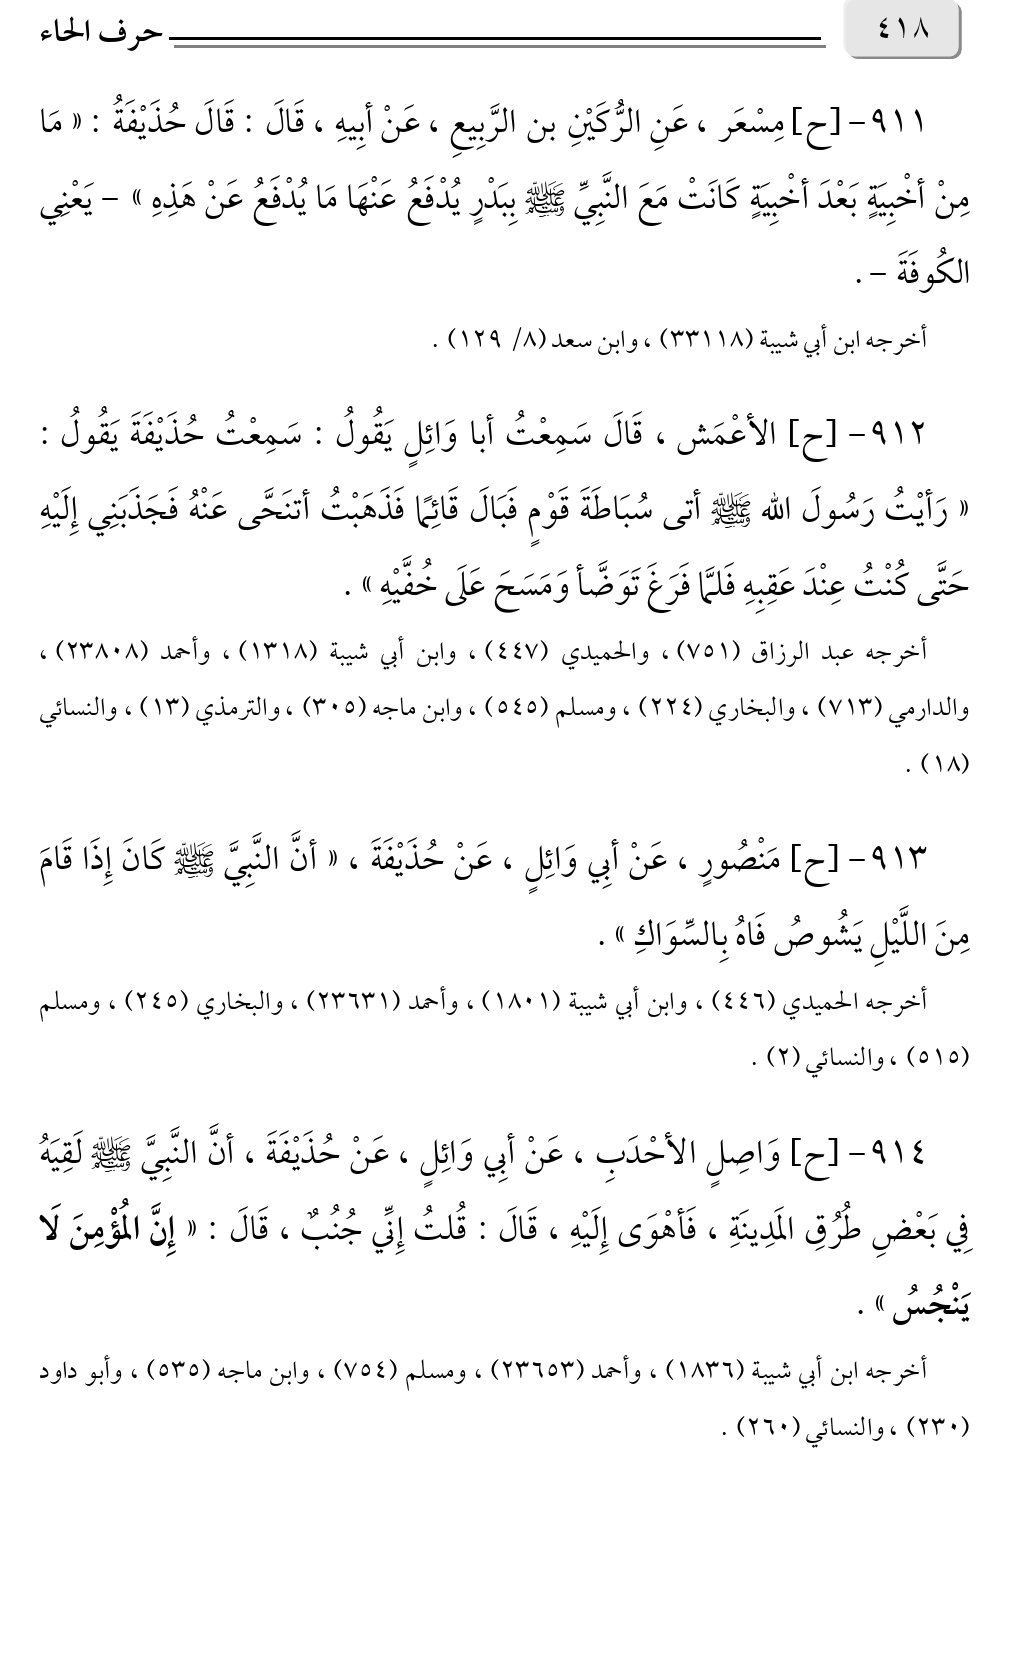 ٤١٨
حرف الحاء
٩١١- [ح] مِسْعَر ، عَنِ الرُّكَيْنِ بن الرَّبِيعِ ، عَنْ أَبِيهِ ، قَالَ : قَالَ حُذَيْفَةُ : « مَا
مِنْ أخْبِيَةٍ بَعْدَ أخْبِيَةٍ كَانَتْ مَعَ النَّبِيِّ ﷺ بِبَدْرٍ يُدْفَعُ عَنْهَا مَا يُدْفَعُ عَنْ هَذِهِ » – يَعْنِي
الكُوفَةَ – .
أخرجه ابن أبي شيبة (٣٣١١٨) ، وابن سعد (٨/ ١٢٩) .
٩١٢- [ح] الأعْمَش ، قَالَ سَمِعْتُ أبا وَائِلٍ يَقُولُ : سَمِعْتُ حُذَيْفَةَ يَقُولُ :
« رَأيْتُ رَسُولَ الله ﷺ أتى سُبَاطَةَ قَوْمٍ فَبَالَ قَائِمًا فَذَهَبْتُ أتنَحَّى عَنْهُ فَجَذَبَنِي إِلَيْهِ
حَتَّى كُنْتُ عِنْدَ عَقِبِهِ فَلمَّا فَرَغَ تَوَضَّأ وَمَسَحَ عَلَى خُفَّيْهِ » .
أخرجه عبد الرزاق (٧٥١) ، والحميدي (٤٤٧) ، وابن أبي شيبة (١٣١٨) ، وأحمد (٢٣٨٠٨) ،
والدارمي (٧١٣) ، والبخاري (٢٢٤) ، ومسلم (٥٤٥) ، وابن ماجه (٣٠٥) ، والترمذي (١٣) ، والنسائي
(١٨) .
٩١٣- [ح] مَنْصُورٍ ، عَنْ أبِي وَائِلٍ ، عَنْ حُذَيْفَةَ ، « أنَّ النَّبِيَّ ﷺ كَانَ إِذَا قَامَ
مِنَ اللَّيْلِ يَشُوصُ فَاهُ بِالسِّوَاكِ » .
أخرجه الحميدي (٤٤٦) ، وابن أبي شيبة (١٨٠١) ، وأحمد (٢٣٦٣١) ، والبخاري (٢٤٥) ، ومسلم
(٥١٥) ، والنسائي (٢) .
٩١٤- [ح] وَاصِلٍ الأحْدَبِ ، عَنْ أبِي وَائِلٍ ، عَنْ حُذَيْفَةَ ، أنَّ النَّبِيَّ ﷺ لَقِيَهُ
فِي بَعْضِ طُرُقِ المَدِينَةِ ، فَأهْوَى إِلَيْهِ ، قَالَ : قُلتُ إِنِّي جُنُبٌ ، قَالَ : « إِنَّ المُؤْمِنَ لَا
يَنْجُسُ » .
أخرجه ابن أبي شيبة (١٨٣٦) ، وأحمد (٢٣٦٥٣) ، ومسلم (٧٥٤) ، وابن ماجه (٥٣٥) ، وأبو داود
(٢٣٠) ، والنسائي (٢٦٠) .